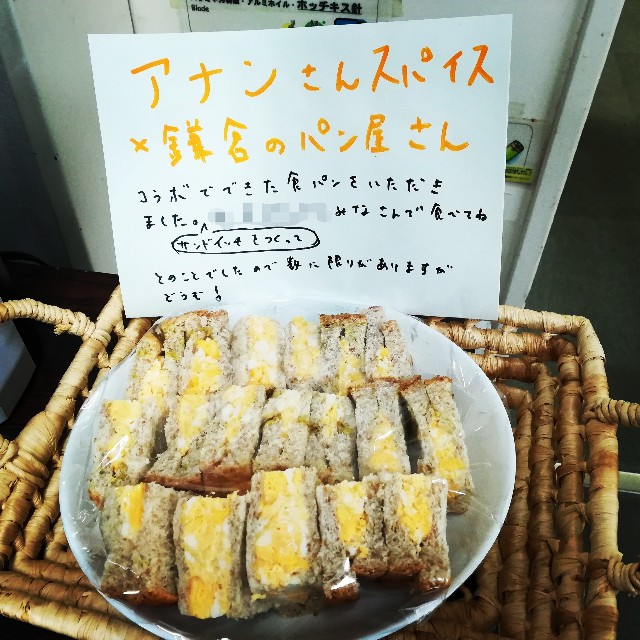 ホッチキス針
Blade
アナンさんスパイス
×鎌倉のパン屋さん
コラボでできた食パンをいただき
ました。 みなさんで食べてね
サンドイッチをつくって
とのことでしたので数に限りがありますが
どうぞ！